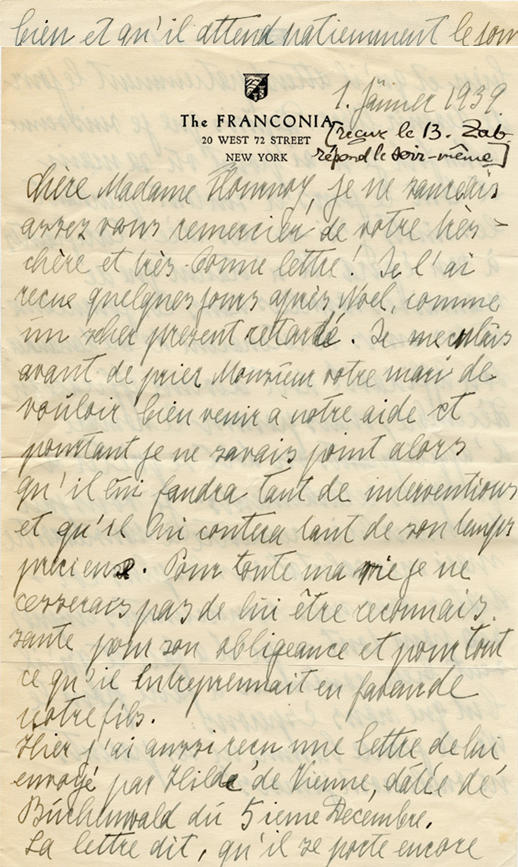 bien et qu'il attend patiemment le jour
1. Jänner 1939
The FRANCONIA
20 WEST 72 STREET
NEW YORK
[reçue le 13. Zab
répond le soir-même]
chère Madame, je ne saurais
assez vous remercier de votre très-
chère et très-bonne lettre! Je l'ai
reçue quelques jours après Noël, comme
un scher present retardé. Je
avant de prier Monsieur votre mari de
vouloir bien venir à notre aide et
pourtant je ne savais point alors
qu'il lui faudra tant de interventions
et qu'il lui coutera tant de son temps
precieux. Pour toute ma vie je ne
cesserais pas de lui être reconnais-
sante pour son obligeance et pour tout
ce qu'il entreprennait en faveur de
notre fils.
Hier j'ai aussi recu une lettre de lui
envoyé par Hilde de Vienne, datée de
Buchenwald du 5ieme Decembre.
La lettre dit, qu'il se porte encore